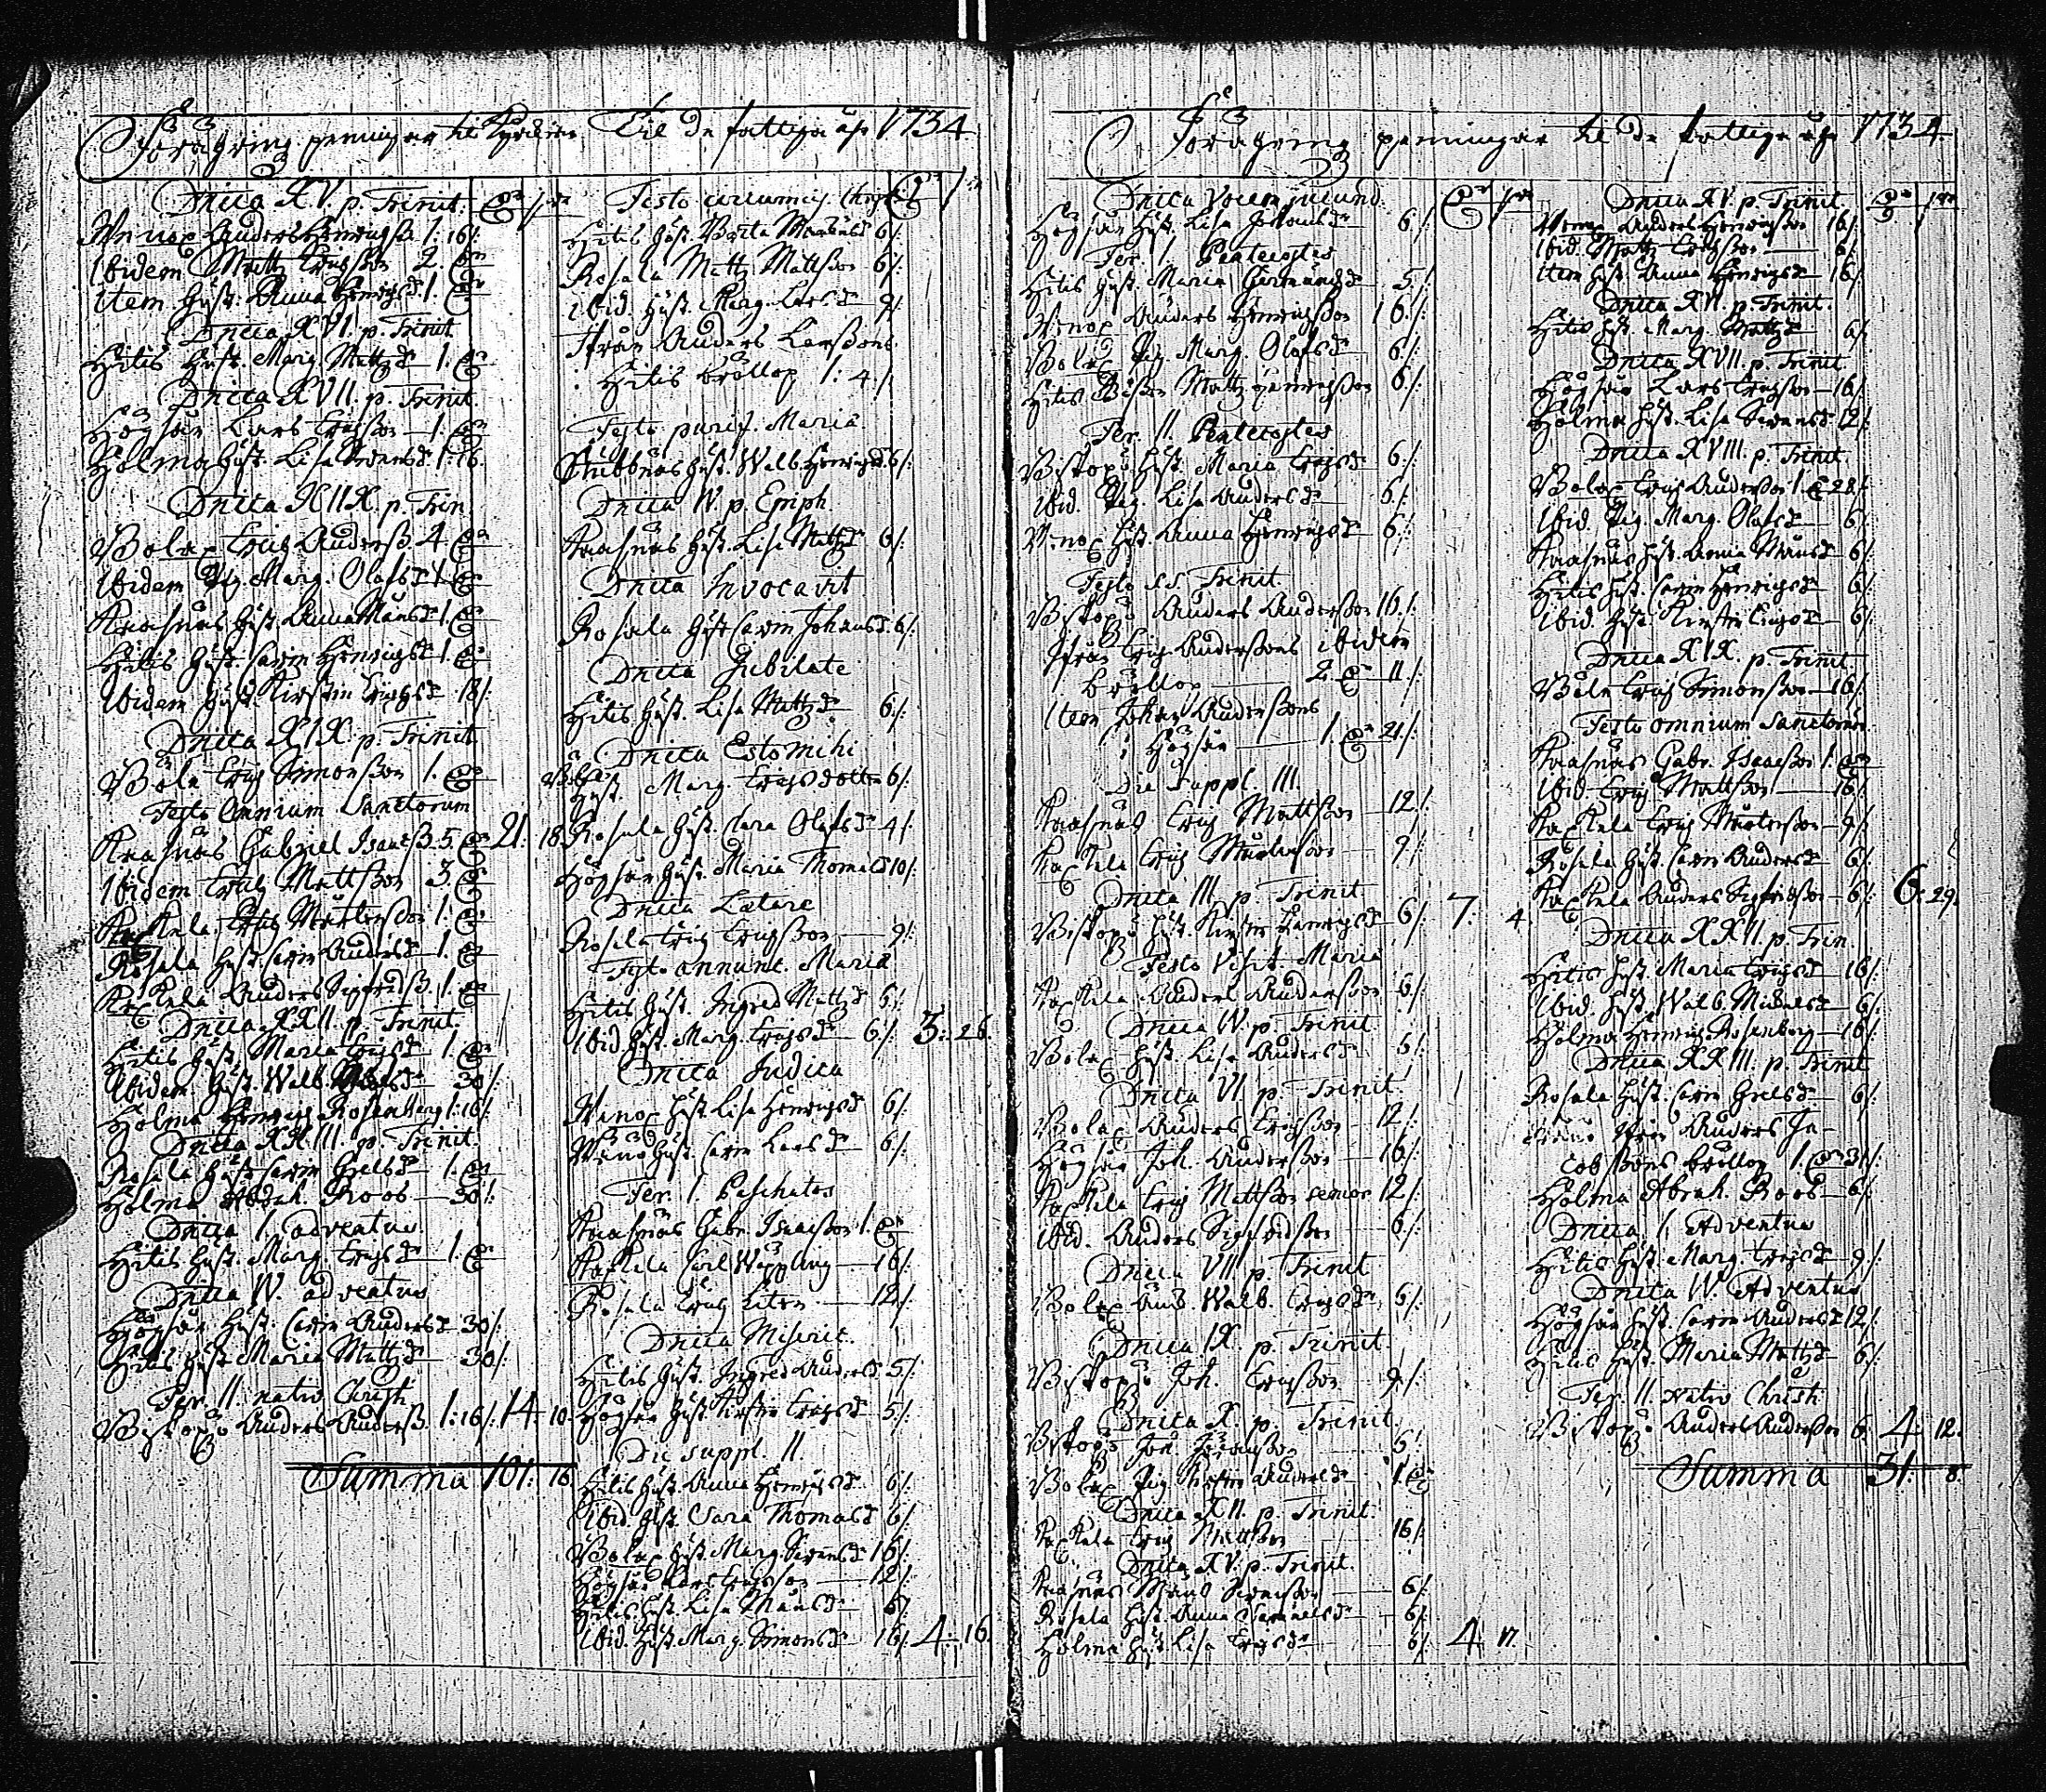 Föräring penningar til Kyrckian
Dnica XV. p. Trinit.
Wänox Anders Henrichss. 1: 16/:
Ibidem Mattz Erichsson 2.
Item Hust. Anna Henrichsd. 1.
Dnica XVI. p. Trinit
Hitis Hust. Marg. Mattzd 1.
Dnica XVII. p. Trinit.
Högsår Lars Erichsson — 1.
Holma Hust. Lisa Svensd. 1: 16.
Dnica XIIX. p. Trin
Bolax Erich Anderss. 4.
Ibidem Pig. Marg. Olofsd 1.
Kaasnäs Hust. Anna Månsd 1.
Hitis Hust. Carin Henrichsd 1.
Ibidem Hust. Kirstin Erichsd 18/:
Dnica XIX. p. Trinit
Böle Erich Simonsson 1.
Festo Omnium Sanctorum
Kaasnäs Gabriel Isacss. 5. 21: 18
Ibidem Erich Mattsson 3.
Kaxkela Erich Mårtensson 1.
Rosala Hust. Carin Andersd 1.
Kaxkela Anders Sigfredss. 1.
Dnica XXII. p. Trinit.
Hitis Hust. Maria Erichsd 1.
Ibidem Hust. Walb. Michelsd 30/:
Holma Henrich Rosenberg 1: 16/:
Dnica XXIII. p. Trinit.
Rosala Hust. Carin Grelsd 1.
Holma Abrah. Roos — 30/:
Dnica I. adventus.
Hitis Hust. Marg. Erichsd 1.
Dnica IV. adventus
Högsår Hust. Carin Andersd 30/:
Hitis Hust. Maria Mattzd 30/:
Fer. II. nativ Christi
Biskopsö Anders Anderss. 1: 16/: 14: 10.
Summa 101: 16.
Til de fattiga åhr 1734
Festo circumcis. Christi
Hitis Hust. Brita Markusd 6/:
Rosala Mattz Mattsson 6/:
Ibid. Hust. Marg. Larsd 9/:
Ifrån Anders Larssons
Hitis bröllop 1: 4/:
Festo purif. Maria
Stubbnäs Hust. Walb. Henrichsd 6/:
Dnica IV. p. Epiph.
Kaasnäs Hust. Lisa Mattzd 6/:
Dnica Invocavit
Rosala Hust. Carin Johansd. 6/:
Dnica Jubilate
Hitis Hust. Lisa Mattzd 6/:
Dnica Estomihi
Hust. Marg. Erichsdotter 6/:
Rosala Hust. Clara Olofsd 4/:
Högsår Hust. Maria Thomasd 10/:
Dnica Lætare
Rosala Erich Erichsson — 9/:
Festo annunt. Maria
Hitis Hust. Ingred Mattzd 6/:
Ibid Hust. Marg. Erichsd 6/: 3: 26.
Dnica Judica
Wänox Hust. Lisa Henrichsd 6/:
Wänö Hust. Carin Larsd 6/:
Fer. I. Paschatos
Kaasnäs Gabr. Isacsson 1.
Kaxkela Carl Wäppling — 16/:
Rosala Erich Liten — 12/:
Dnica Misericc.
Hitis Hust. Ingred Andersd 5/:
Högsår Hust. Kirstin Erichsd 5/:
Die suppl. II.
Hitis Hust. Anna Henrichsd 6/:
Ibid. Hust. Sara Thomasd 6/:
Bolax Hust. Marg. Svensd 16/:
Högsår Lars Erichsson — 12/:
Hitis Hust. Lisa Månsd 6/:
Ibid. Hust. Marg. Simonsd 16/: 4: 16.
Föräring penningar til de fattiga åhr 1734
Dnica Vocem jucund.
Högsår Hust. Lisa Johansd 6/:
Fer. I. Pentecostes
Hitis Hust. Maria Hermansd 5/:
Wänox Anders Henrichsson 16/:
Bolax Pig. Marg. Olofsd 6/:
Hitis Mattz Henrichsson 6/:
Fer. II. Pentecostes
Biskopsö Hust. Maria Erichsd 6/:
Ibid. Pig. Lisa Andersd 6/:
Wänox Hust. Anna Henrichsd 6/:
Festo S.S. Trinit
Biskopsö Anders Andersson 16/:
Ifrån Erich Anderssons ibidem
bröllop — 2. 11/:
Item Johan Anderssons
i Högsår — 1. 21/:
Die Suppl. III.
Kaasnäs Erich Mattsson — 12/:
Kaxkela Erich Mårtensson — 9/:
Dnica III. p. Trinit
Biskopsö Hust. Kirstin Henrichsd 6/: 7: 4
Festo Visit. Maria
Kaxkela Anders Andersson 6/:
Dnica IV. p. Trinit
Bolax Hust. Lisa Andersd 5/:
Dnica VI. p. Trinit
Bolax Anders Erichsson 12/:
Högsår Joh. Andersson — 16/:
Kaxkela Erich Mattsson senior 12/:
Ibid. Anders Sigfredsson — 6/:
Dnica VII. p. Trinit
Bolax Walb. Erichsd 6/:
Dnica IX. p. Trinit.
Biskopsö Joh. Erichsson 9/:
Dnica X. p. Trinit
Biskopsö Joh. Johansson 5/:
Bolax Pig. Kirstin Andersd 1.
Dnica XII. p. Trinit.
Kaxkela Erich Mattsson 16/:
Dnica XV. p. Trinit.
Kaasnäs Måns Svensson — 6/:
Rosala Hust. Anna Samuelsd — 6/:
Holma Hust. Lisa Erichsd — 6/: 4 17.
Dnica XV. p. Trinit.
Wänox Anders Henrichsson 16/:
Ibid. Mattz Erichsson — 6/:
Item Hust. Anna Henrichsd 16/:
Dnica XVI. p. Trinit.
Hitis Hust. Marg. Mattzd 6/:
Dnica XVII. p. Trinit
Högsår Lars Erichsson — 16/:
Holma Hust. Lisa Svensd 12/:
Dnica XVIII. p. Trinit
Bolax Erich Andersson 1. 28/:
Ibid. Pig. Marg. Olofsd 6/:
Kaasnäs Hust. Anna Månsd 6/:
Hitis Hust. Carin Henrichsd 6/:
Ibid. Hust. Kirstin Erichsd 6/:
Dnica XIX. p. Trinit.
Böle Erich Simonsson — 16/:
Festo omnium Sanctorum
Kaasnäs Gabr. Isacsson 1.
Ibid Erich Mattsson — 16/:
Kaxkela Erich Mårtensson — 9/:
Rosala Hust. Carin Andersd 6/:
Kaxkela Anders Sigfredsson — 6/: 6: 29.
Dnica XXII. p. Trin.
Hitis Hust. Maria Erichsd 16/:
Ibid. Hust. Walb. Michelsd 6/:
Holma Henrich Rosenberg — 16/:
Dnica XXIII. p. Trinit
Rosala Hust. Carin Grelsd 6/:
Anders Ja-
cobssons bröllop 1. 31/:
Holma Abrah. Roos — 6/:
Dnica I. Adventus
Hitis Hust. Marg. Erichsd 9/:
Dnica IV. Adventus
Högsår Hust. Carin Andersd 12/:
Hitis Hust. Maria Mattzd 6/:
Fer. II. nativ Christi
Biskopsö Anders Andersson 6. 4. 12.
Summa 31. 8.